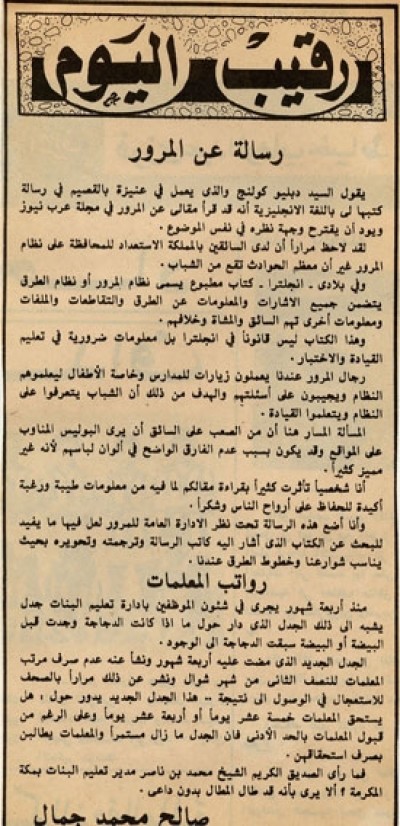 رقيب اليوم
رسالة عن المرور
يقول السيد دبليو كولنج والذى يعمل في عنيزة بالقصيم في رسالة
كتبها لى باللغة الانجليزية أنه قد قرأ مقالى عن المرور في مجلة عرب نيوز
ويود أن يقترح وجهة نظره في نفس الموضوع .
لقد لاحظ مراراً أن لدى السائقين بالمملكة الاستعداد للمحافظة على نظام
المرور غير أن معظم الحوادث تقع من الشباب .
وفي بلادى - انجلترا - كتاب مطبوع يسمى نظام المرور أو نظام الطرق
يتضمن جميع الاشارات والمعلومات عن الطرق والتقاطعات والملفات
ومعلومات أخرى تهم السائق والمشاة وخلافهم .
وهذا الكتاب ليس قانوناً في انجلترا بل معلومات ضرورية في تعليم
القيادة والاختبار .
رجال المرور عندنا يعملون زيارات للمدارس وخاصة الأطفال ليعلموهم
النظام ويجيبون على أسئلتهم والهدف من ذلك أن الشباب يتعرفوا على
النظام ويتعلموا القيادة .
المسألة المسار هنا أن من الصعب على السائق أن يرى البوليس المناوب
على المواقع وقد يكون بسبب عدم الفارق الواضح في ألوان لباسهم لأنه غير
مميز كثيراً .
أنا شخصياً تأثرت كثيراً بقراءة مقالكم لما فيه من معلومات طيبة ورغبة
أكيدة للحفاظ على أرواح الناس وشكراً .
وأنا أضع هذه الرسالة تحت نظر الادارة العامة للمرور لعل فيها ما يفيد
للبحث عن الكتاب الذى أشار اليه كاتب الرسالة وترجمته وتحويره بحيث
يناسب شوارعنا وخطوط الطرق عندنا .
رواتب المعلمات
منذ أربعة شهور يجرى في شئون الموظفين بادارة تعليم البنات جدل
يشبه الى ذلك الجدل الذى دار حول ما اذا كانت الدجاجة وجدت قبل
البيضة أو البيضة سبقت الدجاجة الى الوجود .
الجدل الجديد الذى مضت عليه أربعة شهور ونشأ عنه عدم صرف مرتب
المعلمات للنصف الثانى من شهر شوال ونشر عن ذلك مراراً بالصحف
للاستعجال في الوصول الى نتيجة .. هذا الجدل الجديد يدور حول : هل
يستحق المعلمات خمسة عشر يوماً أو أربعة عشر يوماً وعلى الرغم من
قبول المعلمات بالحد الأدنى فان الجدل ما زال مستمراً والمعلمات يطالبن
بصرف استحقاقهن .
فما رأى الصديق الكريم الشيخ محمد بن ناصر مدير تعليم البنات بمكة
المكرمة ؟ ألا يرى بأنه قد طال المطال بدون داعى .
صالح محمد جمال